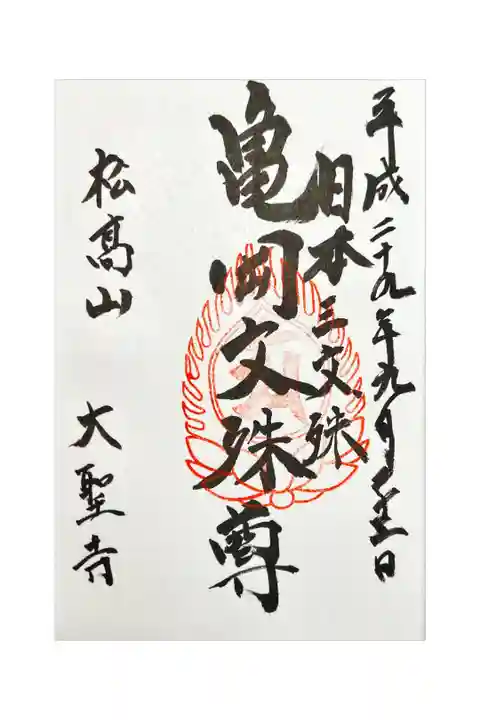 平成二十九年九月 日
日本三文殊
亀岡文殊尊
松高山 大聖寺